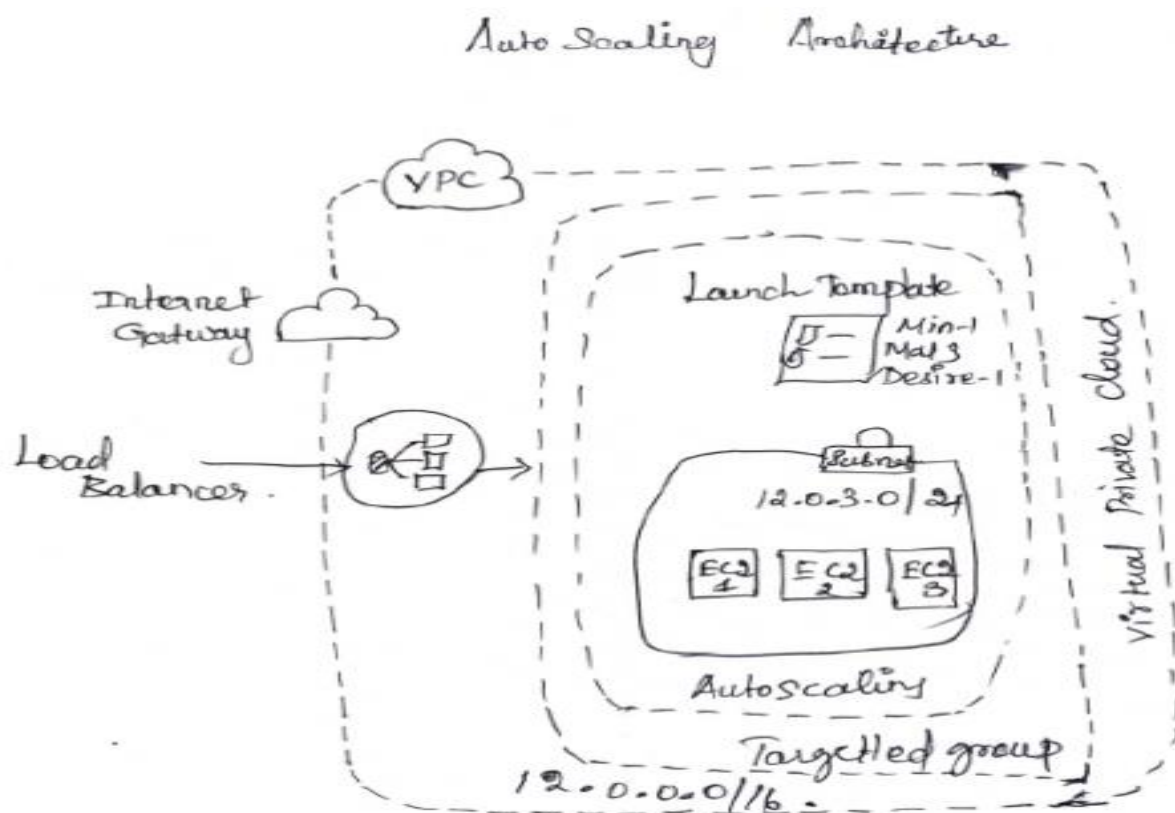 Auto Scaling Architecture
VPC
Internet
Gatway
Launch Template
Min-1
Max 3
Desire-1
Load
Balancer.
Subnet
12.0.3.0/24
EC2
1
EC2
2
EC2
3
Autoscaling
Targetted group
12.0.0.0/16.
Virtual Private Cloud.